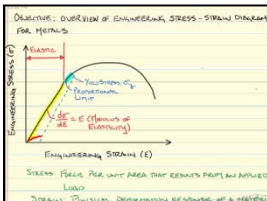 OBJECTIVE: OVERVIEW OF ENGINEERING STRESS-STRAIN DIAGRAM
FOR METALS
ELASTIC
ENGINEERING STRESS (σ)
YIELD STRESS σy
PROPORTIONAL
LIMIT
dσ/dε = E (MODULUS OF
ELASTICITY)
ENGINEERING STRAIN (ε)
STRESS: FORCE PER UNIT AREA THAT RESULTS FROM AN APPLIED
LOAD
STRAIN: PHYSICAL DEFORMATION RESPONSE OF A MATERIAL